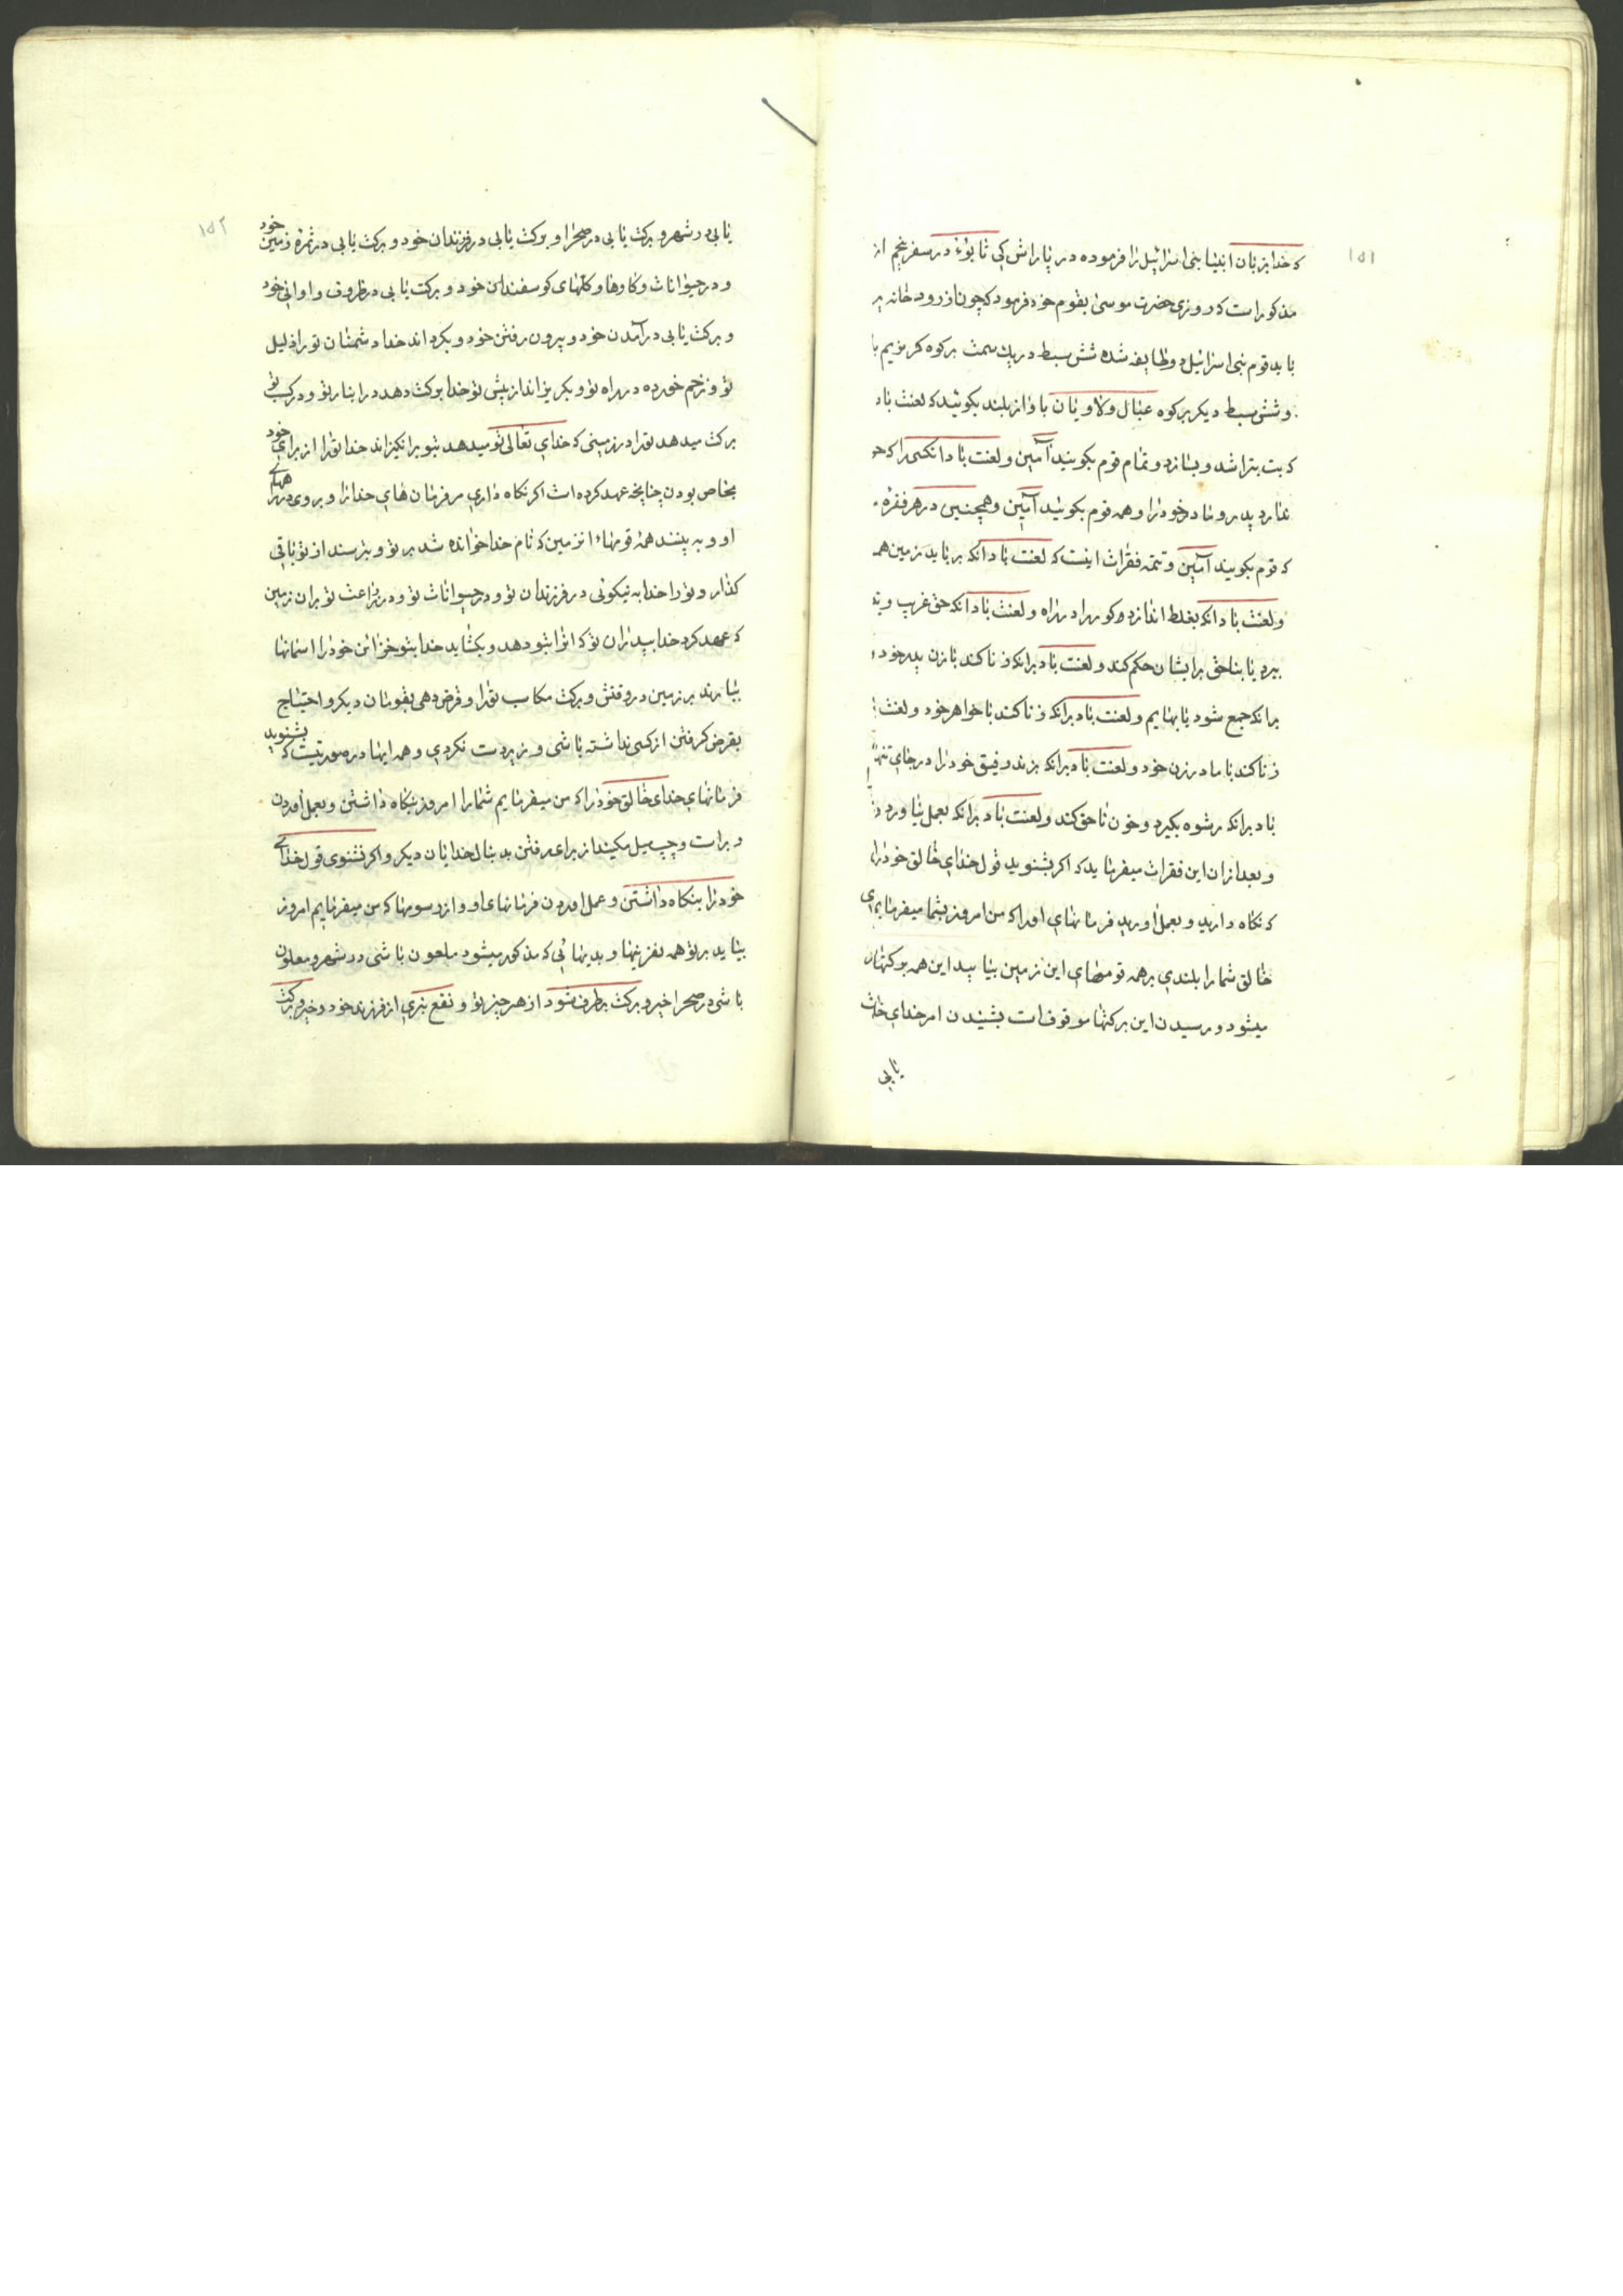 ۱۵۱
که خدا بزبان انبیا بنی اسرائیل را فرموده در پاراش کی تابوء در سفر پنجم از
مذکور است که روزی حضرت موسی بقوم خود فرمود که چون از رودخانه
باید قوم بنی اسرائیل دو طایفه شده شش سبط در یک سمت بر کوه کریزیم
و شش سبط دیگر بر کوه عیبال ولاویان باواز بلند بکویند که لعنت باد
که بت بتراشد و بسازد و تمام قوم بکویند آمین و لعنت باد انکسی را که
ندارد پدر و مادر خود را و همه قوم بکویند آمین و همچنین در هر فقره
که قوم بکویند آمین و تتمه فقرات اینست که لعنت باد انکه برباید زمین
و لعنت باد انکه بغلط اندازد کور را در راه و لعنت باد انکه حق غریب و
ببرد یا بناحق برایشان حکم کند و لعنت باد برانکه زنا کند با زن پدر خود
برانکه جمع شود با بهایم و لعنت باد برانکه زنا کند با خواهر خود و لعنت
زنا کند با مادر زن خود و لعنت باد برانکه بزند رفیق خود را در جای
باد برانکه رشوه بکیرد و خون ناحق کند و لعنت باد برانکه بعمل نیاورد
و بعد از ان این فقرات میفرماید که اکر بشنوید قول خدای خالق خود را
که نکاه دارید و بعمل اورید فرمانهای او را که من امروز بشما میفرمایم
خالق شما را بلندی بر همه قومهای این زمین بیابید این همه برکتها
میشود و رسیدن این برکتها موقوفست بشنیدن امر خدای
یابی
۱۵۲
یابی در شهر و برکت یابی در صحرا و برکت یابی در فرزندان خود و برکت یابی در ثمره زمین خود
و در حیوانات و کاوها و کلهای کوسفندان خود و برکت یابی در ظروف و اوانی خود
و برکت یابی در آمدن خود و بیرون رفتن خود و بکرداند خدا دشمنان تو را ذلیل
تو و زخم خورده در راه تو و بکریز انداز پیش تو خدا برکت دهد در انبار تو و در کسب تو
برکت میدهد تو را در زمینی که خدای تعالی تو میدهد بتو برانکیزاند خدا تو را از برای خود
بخاص بودن چنانچه عهد کرده است اکر نکاه داری فرمان های خدا را و بروی در راههای
او و به بینند همه قومهاء زمین که نام خدا خوانده شد بر تو و بترسند از تو باقی
کذارد تو را خدا به نیکوئی در فرزندان تو و در حیوانات تو و در زراعت تو بران زمین
که عهد کرد خدا بپدران تو که انرا بتو دهد و بکشاید خدا بتو خزائن خود را اسمانها
ببارند بر زمین در وقتش و برکت مکاسب تو را و قرض دهی بقومان دیکر و احتیاج
بقرض کرفتن از کسی نداشته باشی و زیر دست نکردی و همه اینها در صورتیست که بشنوید
فرمانهای خدای خالق خود را که من میفرمایم شما را امروز بنکاه داشتن و بعمل آوردن
و براست و چپ میل مکنید از برای رفتن بدنبال خدایان دیکر و اکر نشنوی قول خدای
خود را بنکاه داشتن و عمل آوردن فرمانهای او و از رسومها که من میفرمایم امروز
بیاید بر تو همه نفرینها و بدیهائی که مذکور میشود ملعون باشی در شهر و ملعون
باشی در صحرا خیر و برکت برطرف شود از هر چیز تو و نفع نبری از فرزند خود و خیر و برکت